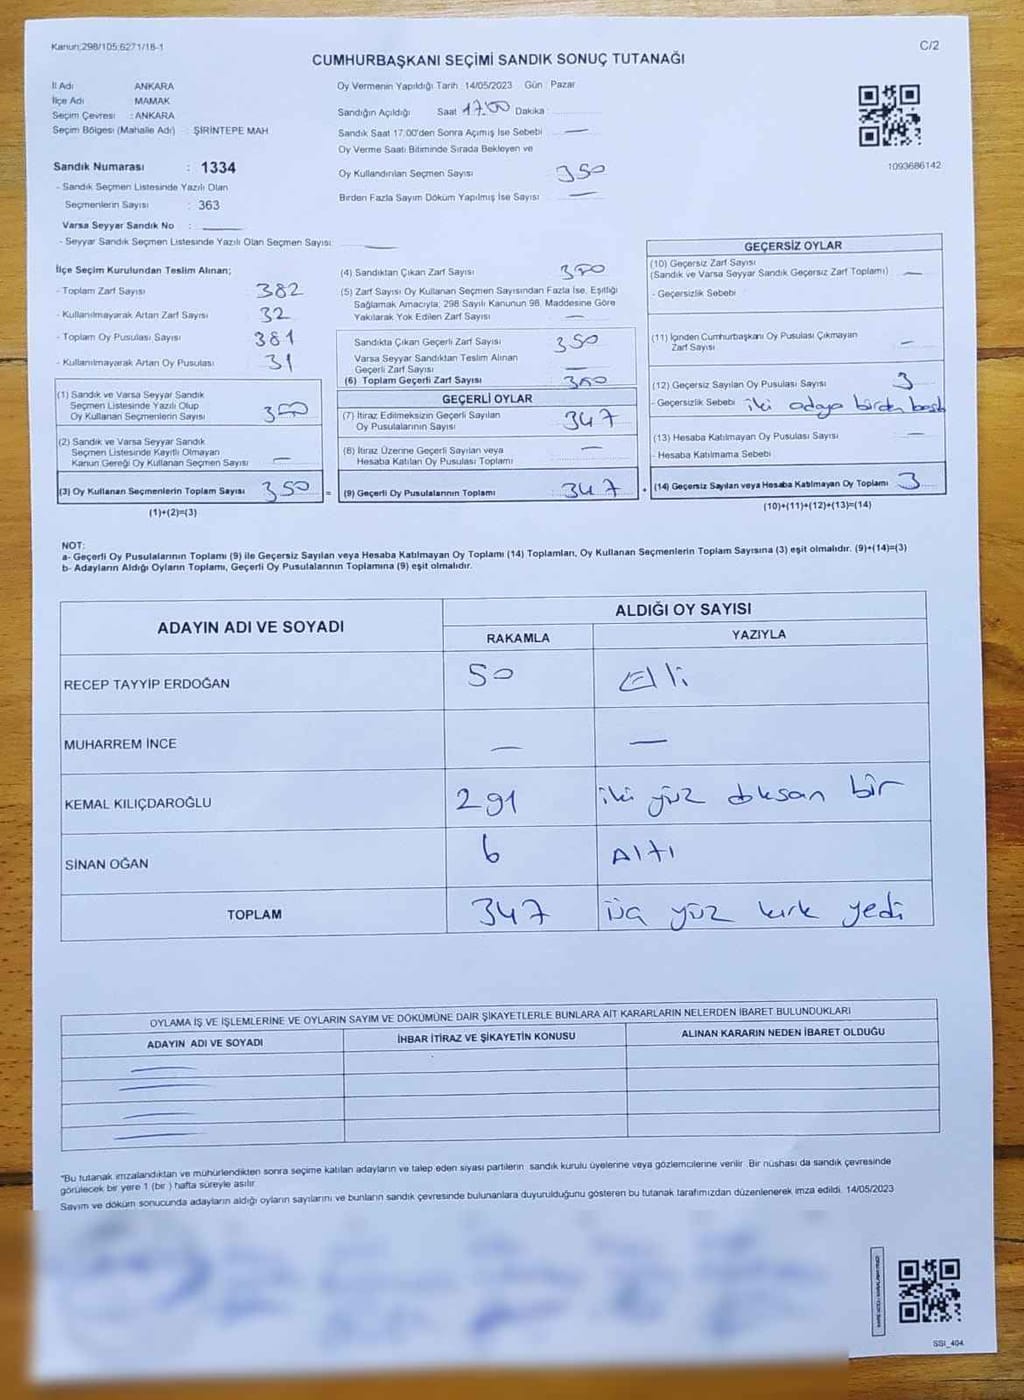 Kanun;298/105;6271/18-1
C/2
CUMHURBAŞKANI SEÇİMİ SANDIK SONUÇ TUTANAĞI
İl Adı ANKARA
İlçe Adı MAMAK
Seçim Çevresi : ANKARA
Seçim Bölgesi (Mahalle Adı) : ŞİRİNTEPE MAH
Oy Vermenin Yapıldığı Tarih : 14/05/2023 Gün : Pazar
Sandığın Açıldığı Saat 17.00 Dakika
Sandık Saat 17:00'den Sonra Açımış İse Sebebi —
Oy Verme Saati Bitiminde Sırada Bekleyen ve
Oy Kullandırılan Seçmen Sayısı 350
Birden Fazla Sayım Döküm Yapılmış İse Sayısı —
1093686142
Sandık Numarası : 1334
- Sandık Seçmen Listesinde Yazılı Olan
Seçmenlerin Sayısı : 363
Varsa Seyyar Sandık No :
- Seyyar Sandık Seçmen Listesinde Yazılı Olan Seçmen Sayısı: —
İlçe Seçim Kurulundan Teslim Alınan;
- Toplam Zarf Sayısı 382
- Kullanılmayarak Artan Zarf Sayısı 32
- Toplam Oy Pusulası Sayısı 381
- Kullanılmayarak Artan Oy Pusulası 31
(1) Sandık ve Varsa Seyyar Sandık
Seçmen Listesinde Yazılı Olup
Oy Kullanan Seçmenlerin Sayısı 350
(2) Sandık ve Varsa Seyyar Sandık
Seçmen Listesinde Kayıtlı Olmayan
Kanun Gereği Oy Kullanan Seçmen Sayısı —
(3) Oy Kullanan Seçmenlerin Toplam Sayısı 350 =
(1)+(2)=(3)
(4) Sandıktan Çıkan Zarf Sayısı 350
(5) Zarf Sayısı Oy Kullanan Seçmen Sayısından Fazla İse, Eşitliği
Sağlamak Amacıyla; 298 Sayılı Kanunun 98. Maddesine Göre
Yakılarak Yok Edilen Zarf Sayısı —
Sandıkta Çıkan Geçerli Zarf Sayısı 350
Varsa Seyyar Sandıktan Teslim Alınan
Geçerli Zarf Sayısı —
(6) Toplam Geçerli Zarf Sayısı 350
GEÇERLİ OYLAR
(7) İtiraz Edilmeksizin Geçerli Sayılan
Oy Pusulalarının Sayısı 347
(8) İtiraz Üzerine Geçerli Sayılan veya
Hesaba Katılan Oy Pusulası Toplamı —
(9) Geçerli Oy Pusulalarının Toplamı 347 +
GEÇERSİZ OYLAR
(10) Geçersiz Zarf Sayısı
(Sandık ve Varsa Seyyar Sandık Geçersiz Zarf Toplamı) —
- Geçersizlik Sebebi
(11) İçinden Cumhurbaşkanı Oy Pusulası Çıkmayan
Zarf Sayısı —
(12) Geçersiz Sayılan Oy Pusulası Sayısı 3
- Geçersizlik Sebebi iki adaya birden
(13) Hesaba Katılmayan Oy Pusulası Sayısı —
- Hesaba Katılmama Sebebi
(14) Geçersiz Sayılan veya Hesaba Katılmayan Oy Toplamı 3
(10)+(11)+(12)+(13)=(14)
NOT:
a- Geçerli Oy Pusulalarının Toplamı (9) ile Geçersiz Sayılan veya Hesaba Katılmayan Oy Toplamı (14) Toplamları, Oy Kullanan Seçmenlerin Toplam Sayısına (3) eşit olmalıdır. (9)+(14)=(3)
b- Adayların Aldığı Oyların Toplamı, Geçerli Oy Pusulalarının Toplamına (9) eşit olmalıdır.
ADAYIN ADI VE SOYADI ALDIĞI OY SAYISI
RAKAMLA YAZIYLA
RECEP TAYYİP ERDOĞAN 50 Elli
MUHARREM İNCE — —
KEMAL KILIÇDAROĞLU 291 iki yüz doksan bir
SİNAN OĞAN 6 Altı
TOPLAM 347 üç yüz kırk yedi
OYLAMA İŞ VE İŞLEMLERİNE VE OYLARIN SAYIM VE DÖKÜMÜNE DAİR ŞİKAYETLERLE BUNLARA AİT KARARLARIN NELERDEN İBARET BULUNDUKLARI
ADAYIN ADI VE SOYADI İHBAR İTİRAZ VE ŞİKAYETİN KONUSU ALINAN KARARIN NEDEN İBARET OLDUĞU
"Bu tutanak imzalandıktan ve mühürlendikten sonra seçime katılan adayların ve talep eden siyasi partilerin sandık kurulu üyelerine veya gözlemcilerine verilir. Bir nüshası da sandık çevresinde
görülecek bir yere 1 (bir ) hafta süreyle asılır.
Sayım ve döküm sonucunda adayların aldığı oyların sayılarını ve bunların sandık çevresinde bulunanlara duyurulduğunu gösteren bu tutanak tarafımızdan düzenlenerek imza edildi. 14/05/2023
SSI_404